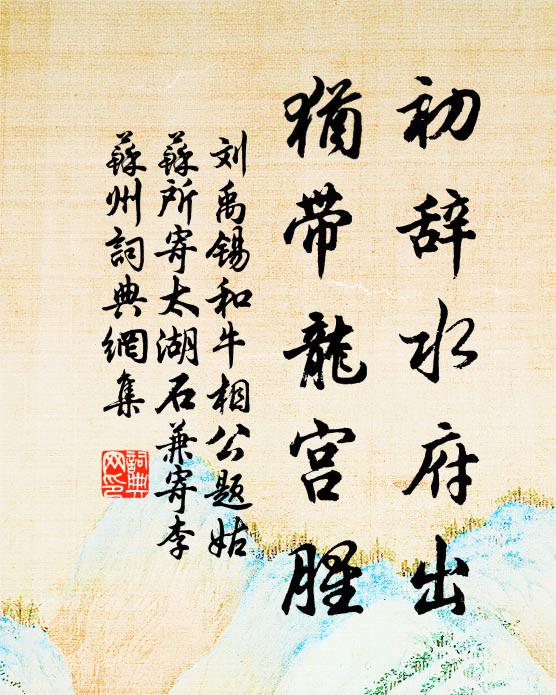 初辞水府出
猶带龍宫腥
刘禹锡和牛相公题姑
蘇所寄太湖石兼寄李
蘇州
詞典網集
詞典
网印